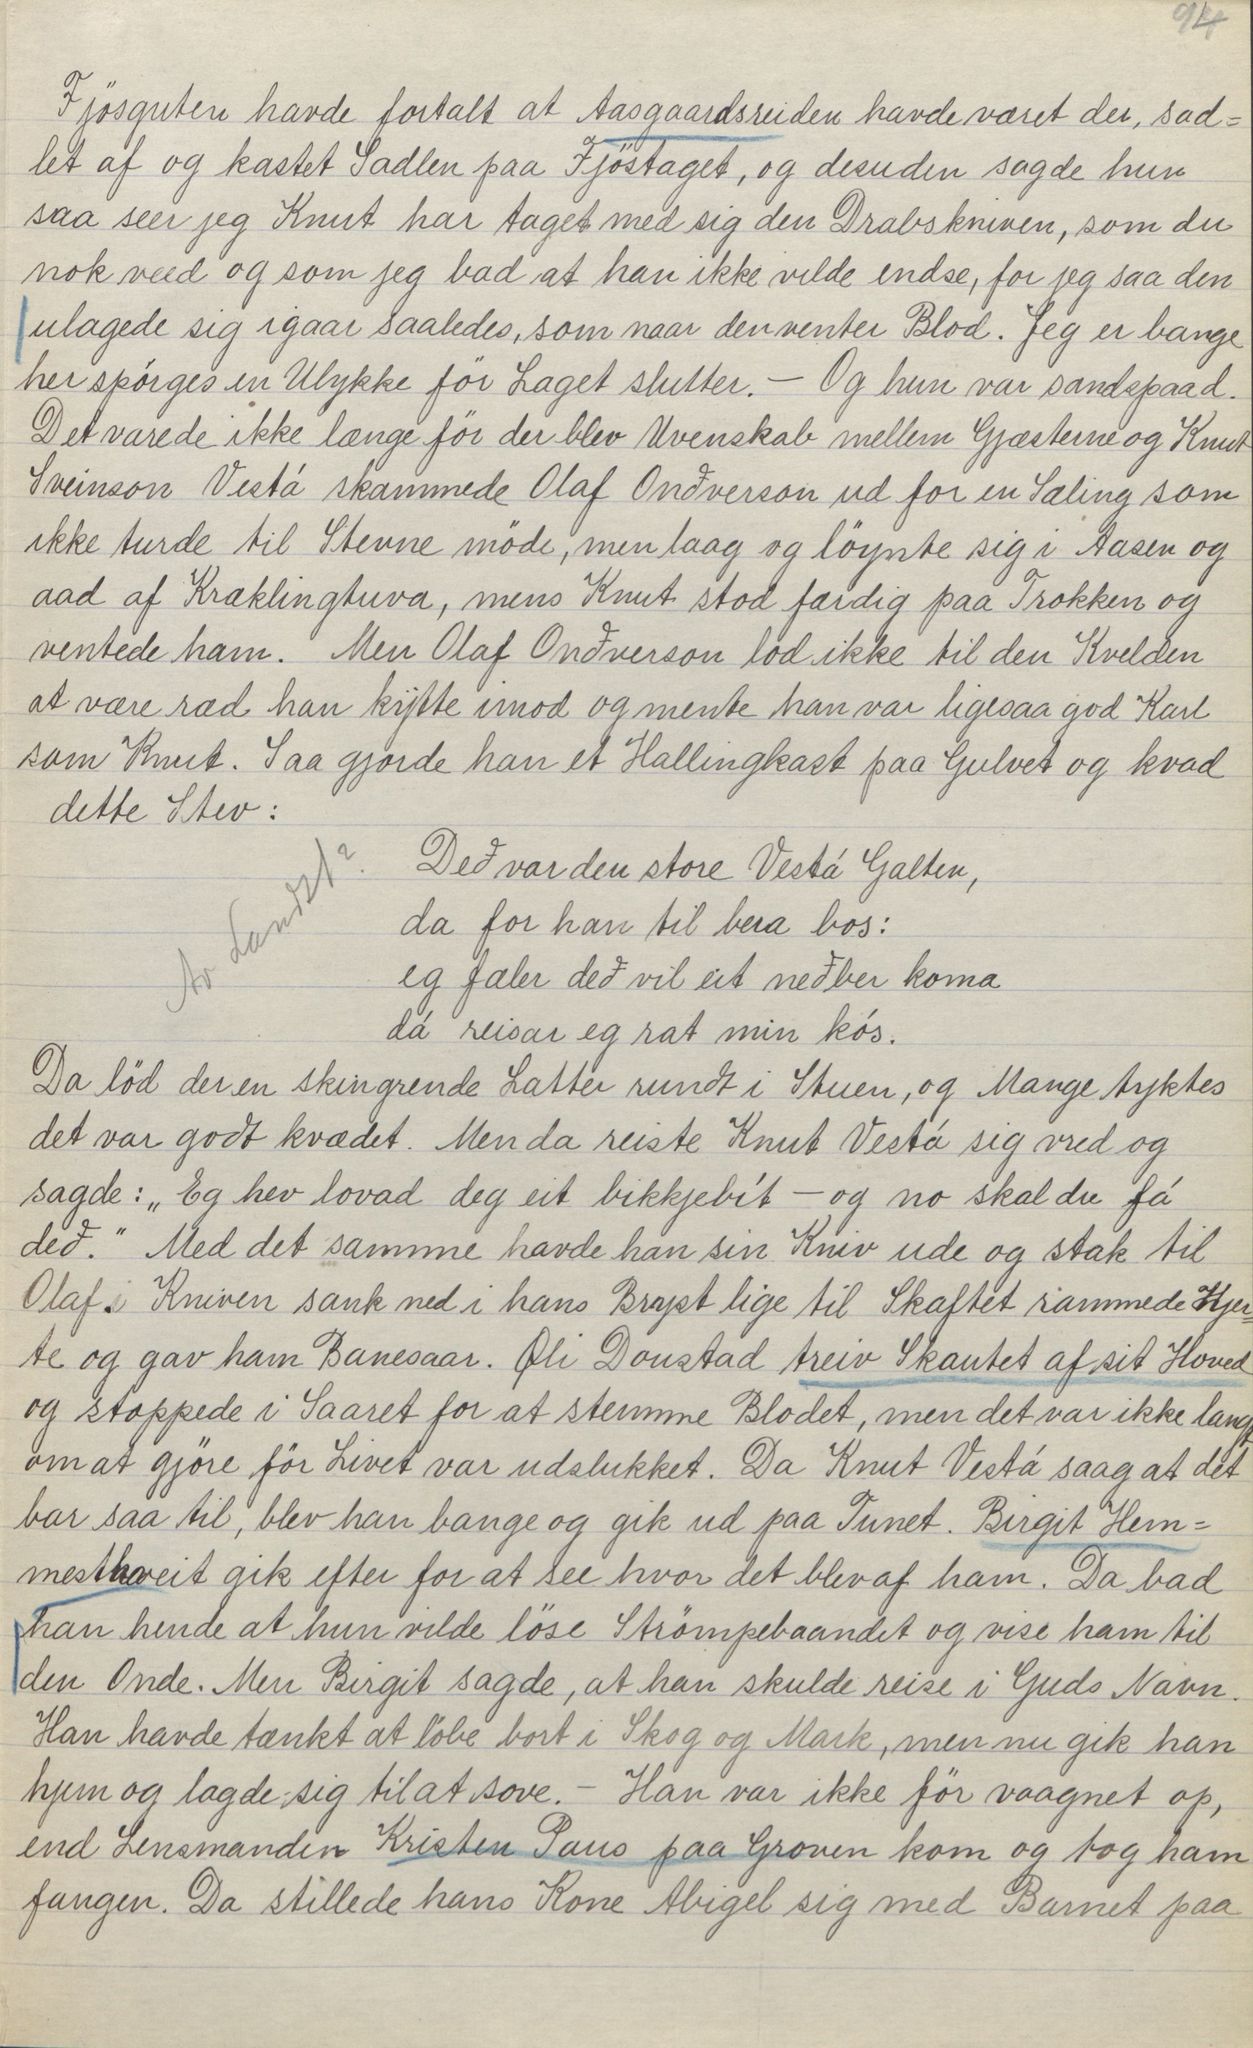 94
Fjösguten havde fortalt at Aasgaardsreiden havde været der, sad=
let af og kastet Sadlen paa Fjöstaget, og desuden sagde hun
saa seer jeg Knut har taget med sig den Drabskniven, som du
nok veed og som jeg bad at han ikke vilde endse, for jeg saa den
ulagede sig igaar saaledes, som naar den venter Blod. Jeg er bange
her spörges en Ulykke för Laget slutter. — Og hun var sandspaad.
Det varede ikke længe för der blev Uvenskab mellem Gjæsterne og Knut
Sveinson Vestá skammede Olaf Onðverson ud for en Sæling som
ikke turde til Stevne möde, men laag og löynte sig i Aasen og
aad af Kræklingtuva, mens Knut stod færdig paa Trokken og
ventede ham. Men Olaf Onðverson lod ikke til den Kvelden
at være ræd han kytte imod og mente han var ligesaa god Karl
som Knut. Saa gjorde han et Hallingkast paa Gulvet og kvad
dette Stev:
Av Landst?
Deð var den store Vestá Galten,
da for han til bera bos:
eg fæler deð vil eit neðber koma
dá reisar eg rat min kós.
Da löd der en skingrende Latter rundt i Stuen, og Mange tyktes
det var godt kvædet. Men da reiste Knut Vestá sig vred og
sagde: „Eg hev lovad deg eit bikkjebít — og no skal du fá
deð." Med det samme havde han sin Kniv ude og stak til
Olaf i Kniven sank ned i hans Bryst lige til Skaftet rammede Hjer=
te og gav ham Banesaar. Øli Doustad treiv Skautet af sit Hoved
og stoppede i Saaret for at stemme Blodet, men det var ikke langt
om at gjöre för Livet var udslukket. Da Knut Vestá saag at det
bar saa til, blev han bange og gik ud paa Tunet. Birgit Hem=
mesthveit gik efter for at see hvor det blev af ham. Da bad
han hende at hun vilde löse Strömpebaandet og vise ham til
den Onde. Men Birgit sagde, at han skulde reise i Guds Navn.
Han havde tænkt at löbe bort i Skog og Mark, men nu gik han
hjem og lagde sig til at sove. — Han var ikke för vaagnet op,
end Lensmanden Kristen Paus paa Groven kom og tog ham
fangen. Da stillede hans Kone Abigel sig med Barnet paa